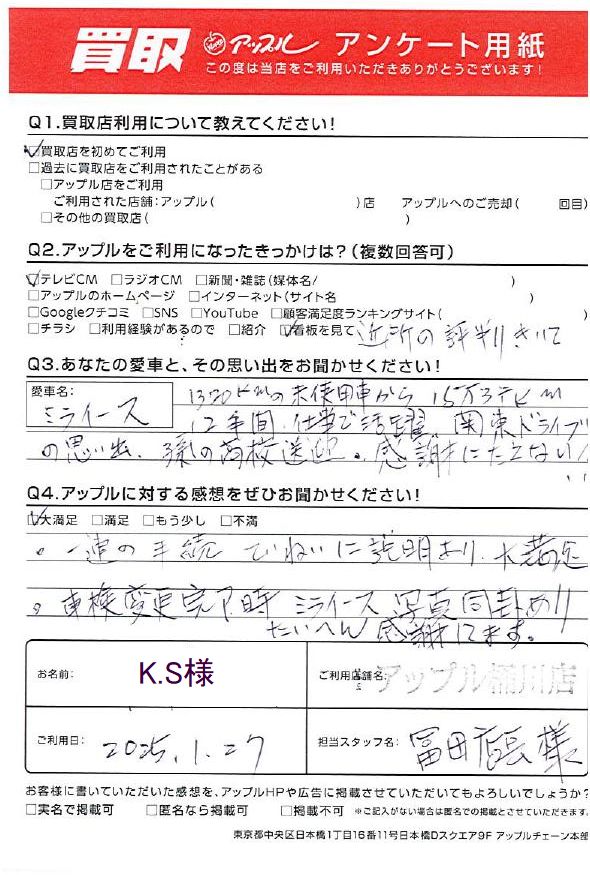 買取 アップル アンケート用紙
この度は当店をご利用いただきありがとうございます!
Q1.買取店利用について教えてください!
☑買取店を初めてご利用
□過去に買取店をご利用されたことがある
□アップル店をご利用
ご利用された店舗:アップル( )店 アップルへのご売却( 回目)
□その他の買取店( )
Q2.アップルをご利用になったきっかけは?(複数回答可)
☑テレビCM □ラジオCM □新聞・雑誌(媒体名/ )
□アップルのホームページ □インターネット(サイト名 )
□Googleクチコミ □SNS □YouTube □顧客満足度ランキングサイト( )
□チラシ □利用経験があるので □紹介 ☑看板を見て 近所の評判きいて
Q3.あなたの愛車と、その思い出をお聞かせください!
愛車名: 1320KMの未使用車から 15万3千KM
ミライース 12年間、仕事で活躍 関東ドライブ
の思い出、孫の高校送迎。感謝にたえない!
Q4.アップルに対する感想をぜひお聞かせください!
☑大満足 □満足 □もう少し □不満
。一連の手続 ていねいに説明あり、大満足
。車検変更完了時 ミライース 写真同封あり
たいへん感謝してます。
お名前: K.S様 ご利用店舗名: アップル桶川店
ご利用日: 2025.1.27 担当スタッフ名: 冨田店長様
お客様に書いていただいた感想を、アップルHPや広告に掲載させていただいてもよろしいでしょうか?
□実名で掲載可 □匿名なら掲載可 □掲載不可 ※ご記入がない場合は匿名での掲載とさせていただきます。
東京都中央区日本橋1丁目16番11号日本橋Dスクエア9F アップルチェーン本部